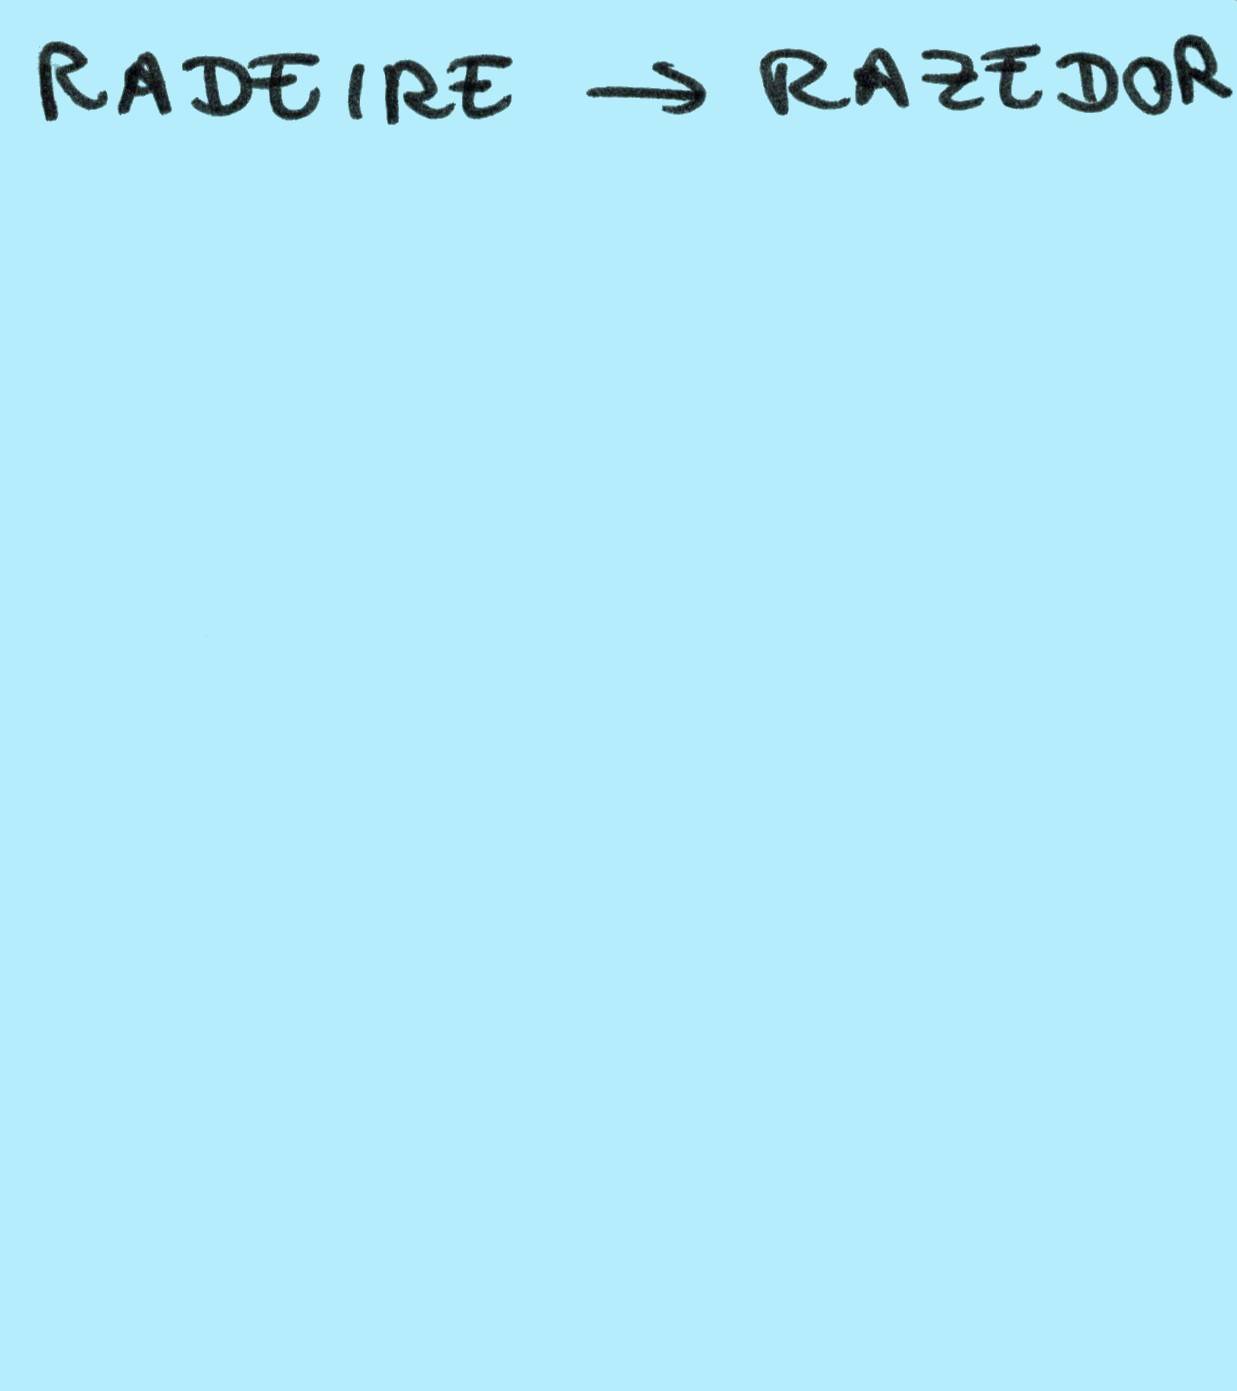 RADEIRE → RAZEDOR